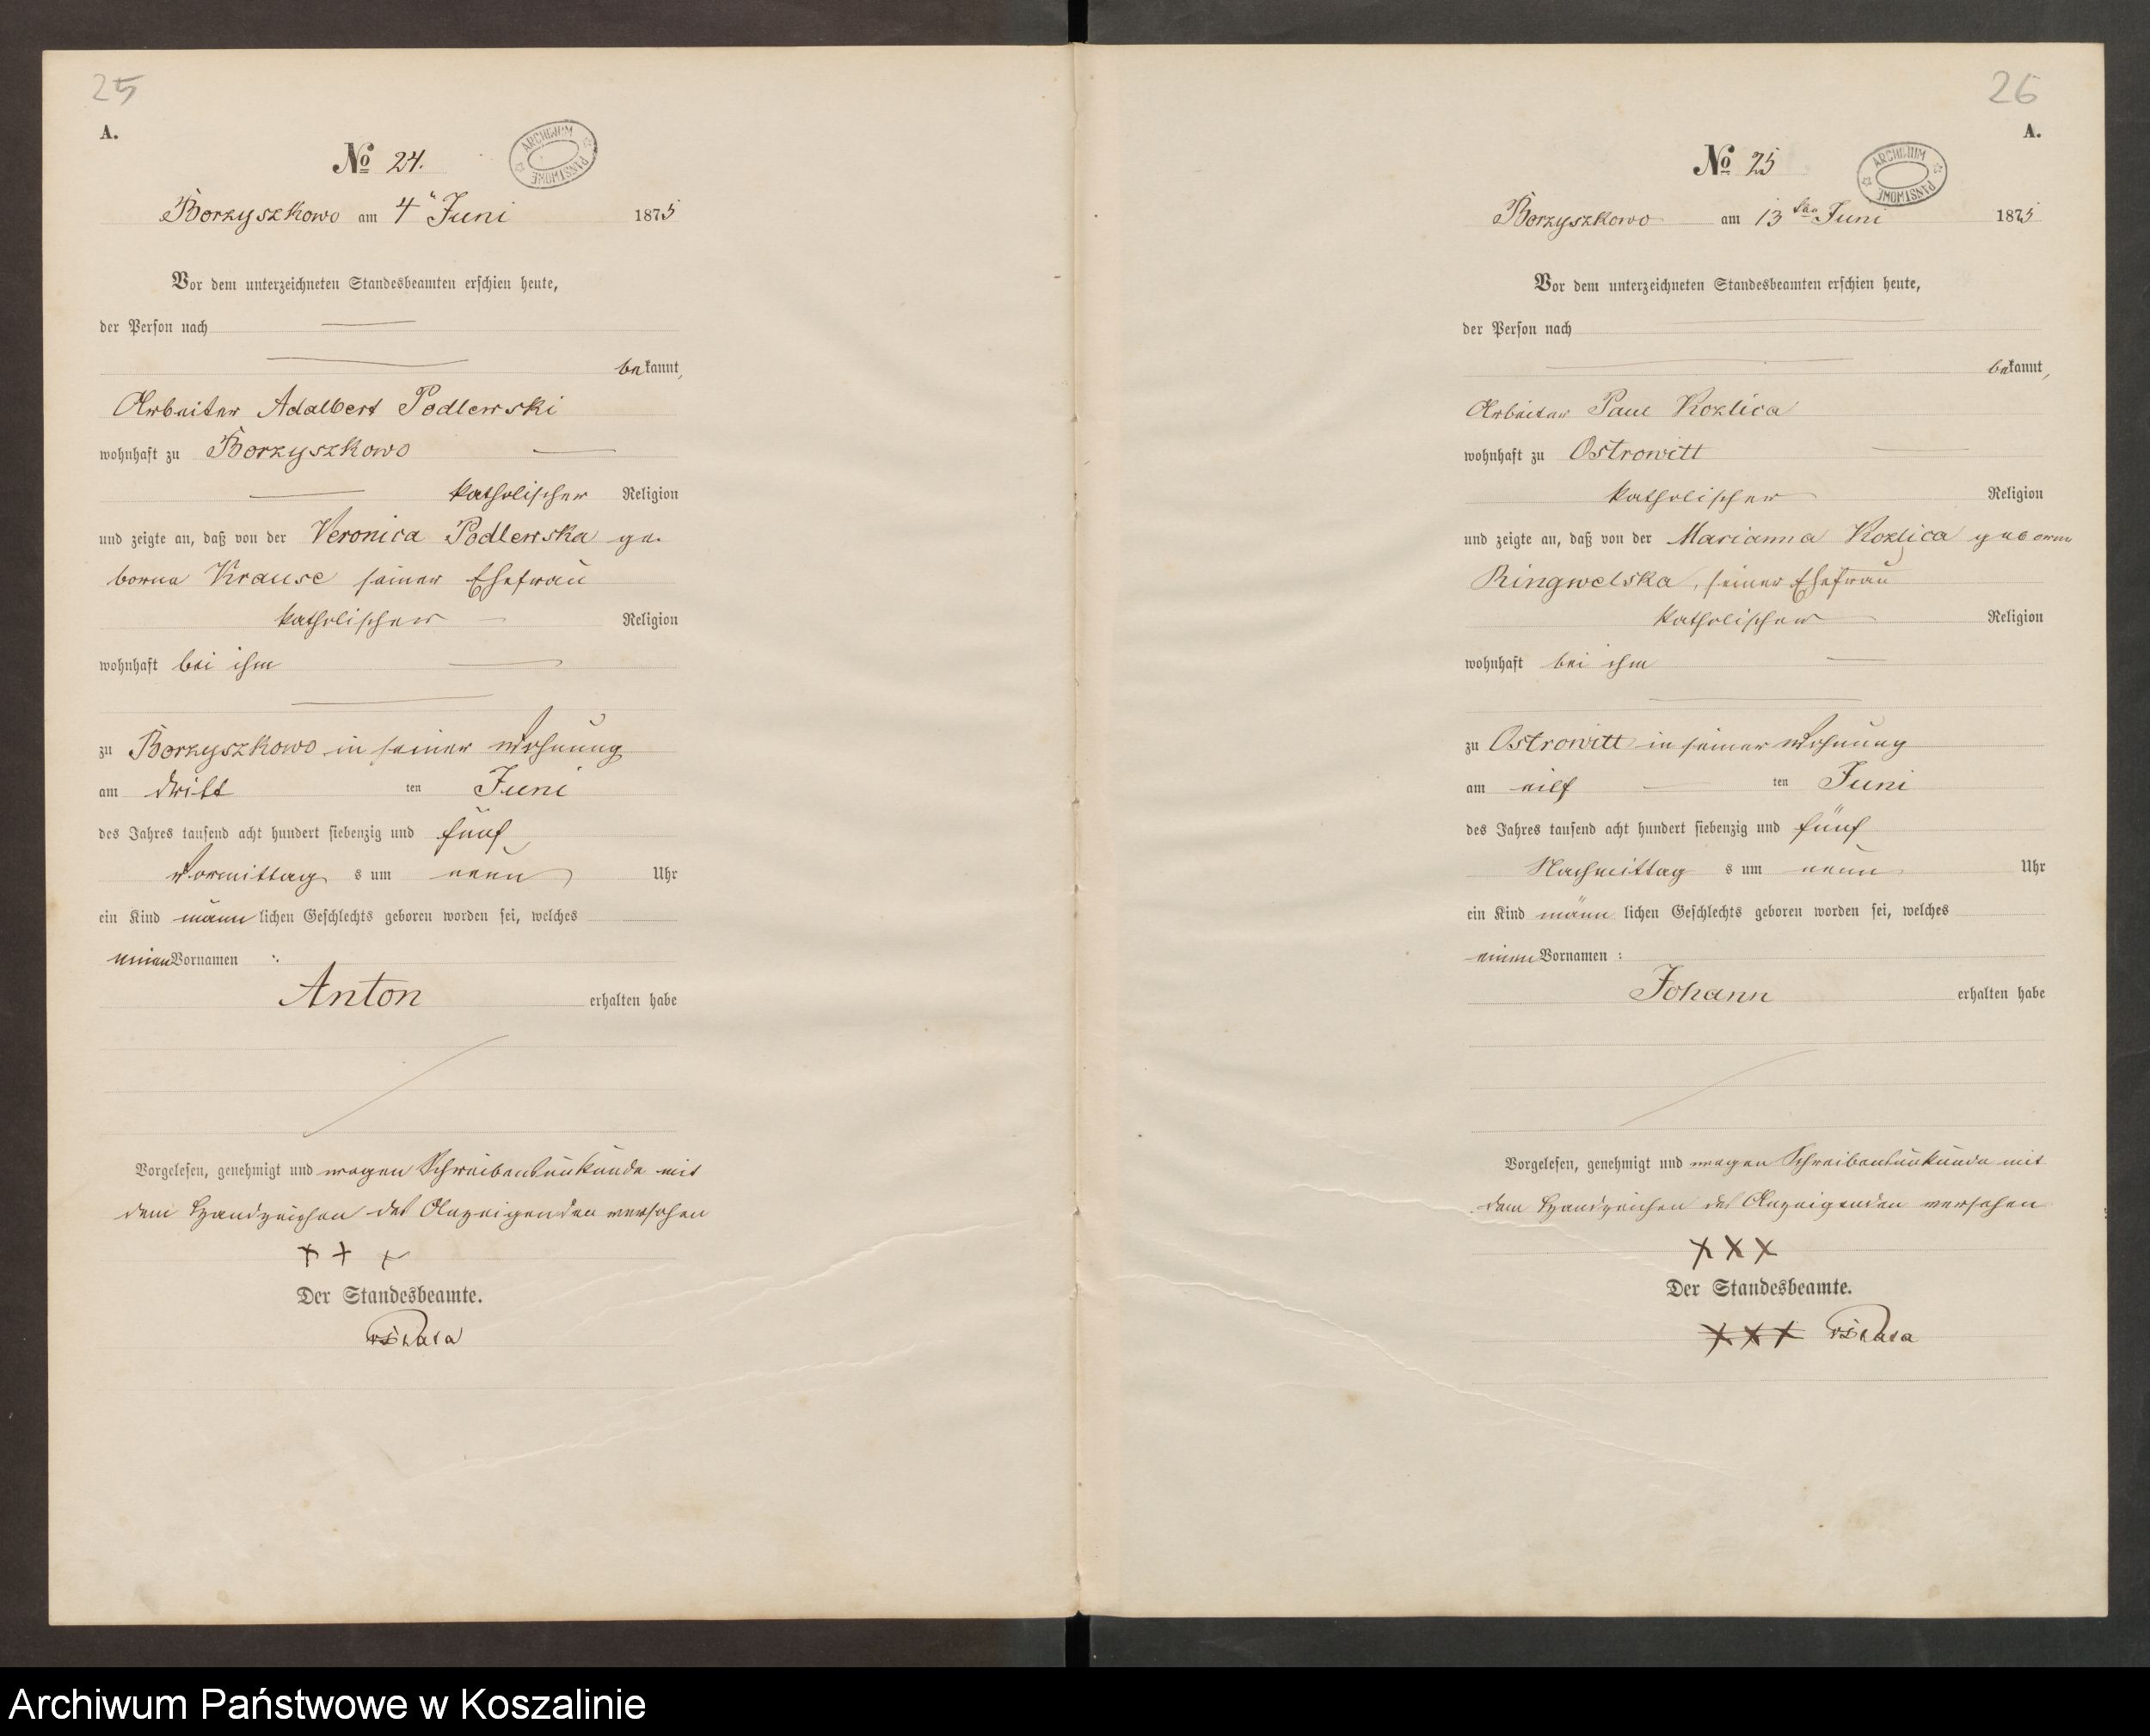 25
A.
No 24.
ARCHIWUM PAŃSTWOWE
Borzyszkowo am 4" Juni 1875
Vor dem unterzeichneten Standesbeamten erschien heute,
der Person nach
bekannt,
Arbeiter Adalbert Podlewski
wohnhaft zu Borzyszkowo
katholischer Religion
und zeigte an, daß von der Veronica Podlewska ge-
borne Krause seiner Ehefrau
katholischer Religion
wohnhaft bei ihm
zu Borzyszkowo in seiner Wohnung
am dritt ten Juni
des Jahres tausend acht hundert siebenzig und fünf
Vormittag s um neun Uhr
ein Kind männ lichen Geschlechts geboren worden sei, welches
einen Vornamen :
Anton erhalten habe
Vorgelesen, genehmigt und wegen Schreibensunkunde mit
dem Handzeichen des Anzeigenden versehen
+ + +
Der Standesbeamte.
26
A.
No 25
ARCHIWUM PAŃSTWOWE
Borzyszkowo am 13ten Juni 1875
Vor dem unterzeichneten Standesbeamten erschien heute,
der Person nach
bekannt,
Arbeiter Paul Kozlica
wohnhaft zu Ostrowitt
katholischer Religion
und zeigte an, daß von der Marianna Kozlica geborne
Ringwelska, seiner Ehefrau
katholischer Religion
wohnhaft bei ihm
zu Ostrowitt in seiner Wohnung
am eilf ten Juni
des Jahres tausend acht hundert siebenzig und fünf
Nachmittag s um neun Uhr
ein Kind männ lichen Geschlechts geboren worden sei, welches
einen Vornamen :
Johann erhalten habe
Vorgelesen, genehmigt und wegen Schreibensunkunde mit
dem Handzeichen des Anzeigenden versehen
XXX
Der Standesbeamte.
XXX
Archiwum Państwowe w Koszalinie